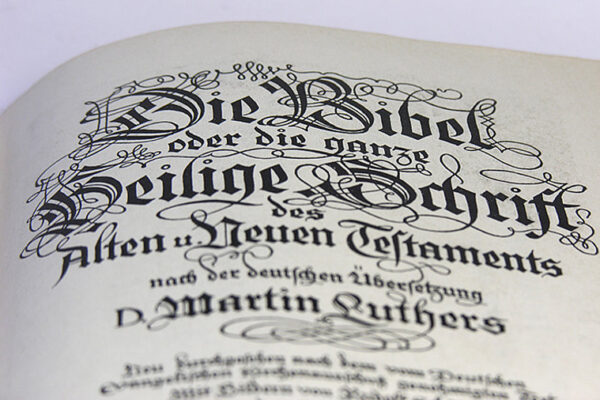 Die Bibel
oder die ganze
Heilige Schrift
des
Alten u. Neuen Testaments
nach der deutschen Übersetzung
D. Martin Luthers
Neu durchgesehen nach dem vom Deutschen
Evangelischen Kirchenausschuß genehmigten Text
Mit Bildern von Rudolf